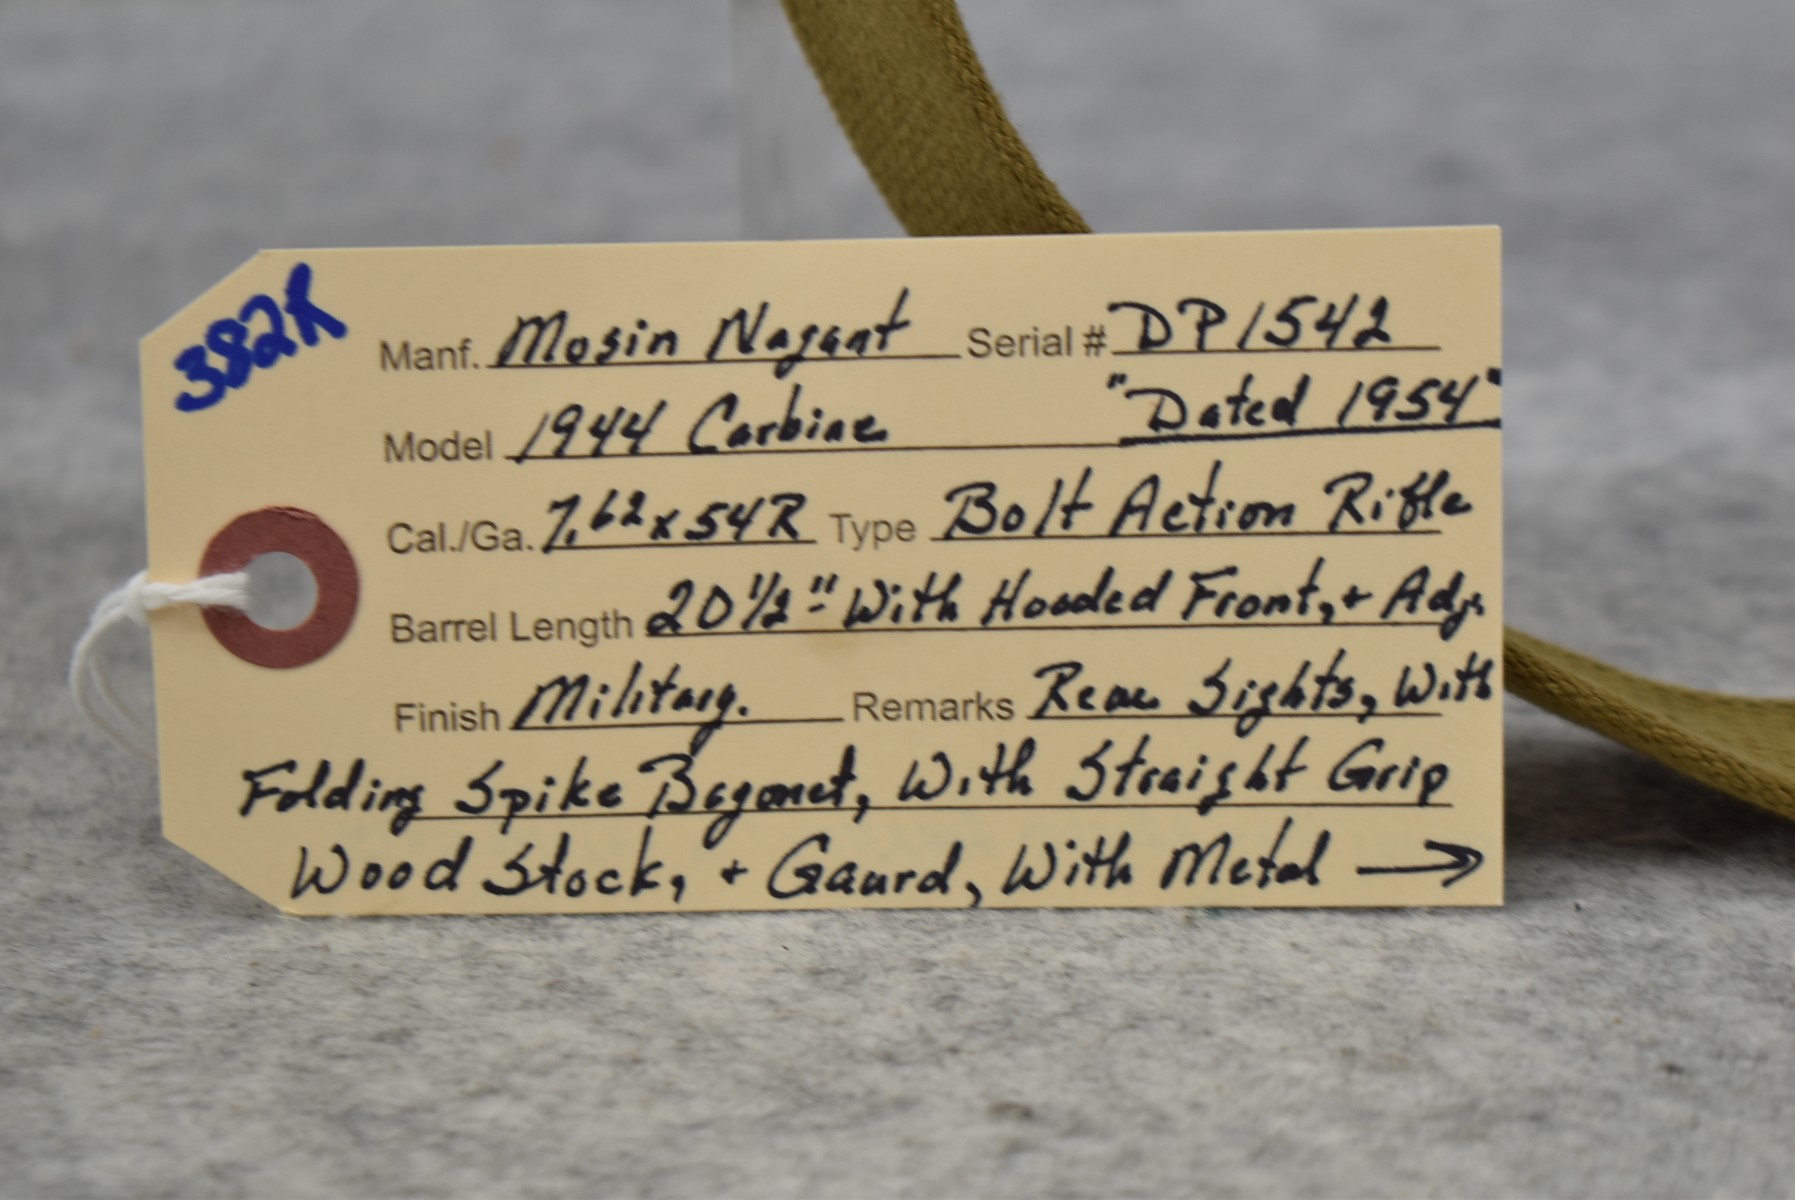 382K
Manf. Mosin Nagant Serial # DP1542
Model 1944 Carbine "Dated 1954"
Cal./Ga. 7.62x54R Type Bolt Action Rifle
Barrel Length 20 1/2" With Hooded Front, + Adj.
Finish Military. Remarks Rear Sights, With
Folding Spike Bayonet, With Straight Grip
Wood Stock, + Gaurd, With Metal →